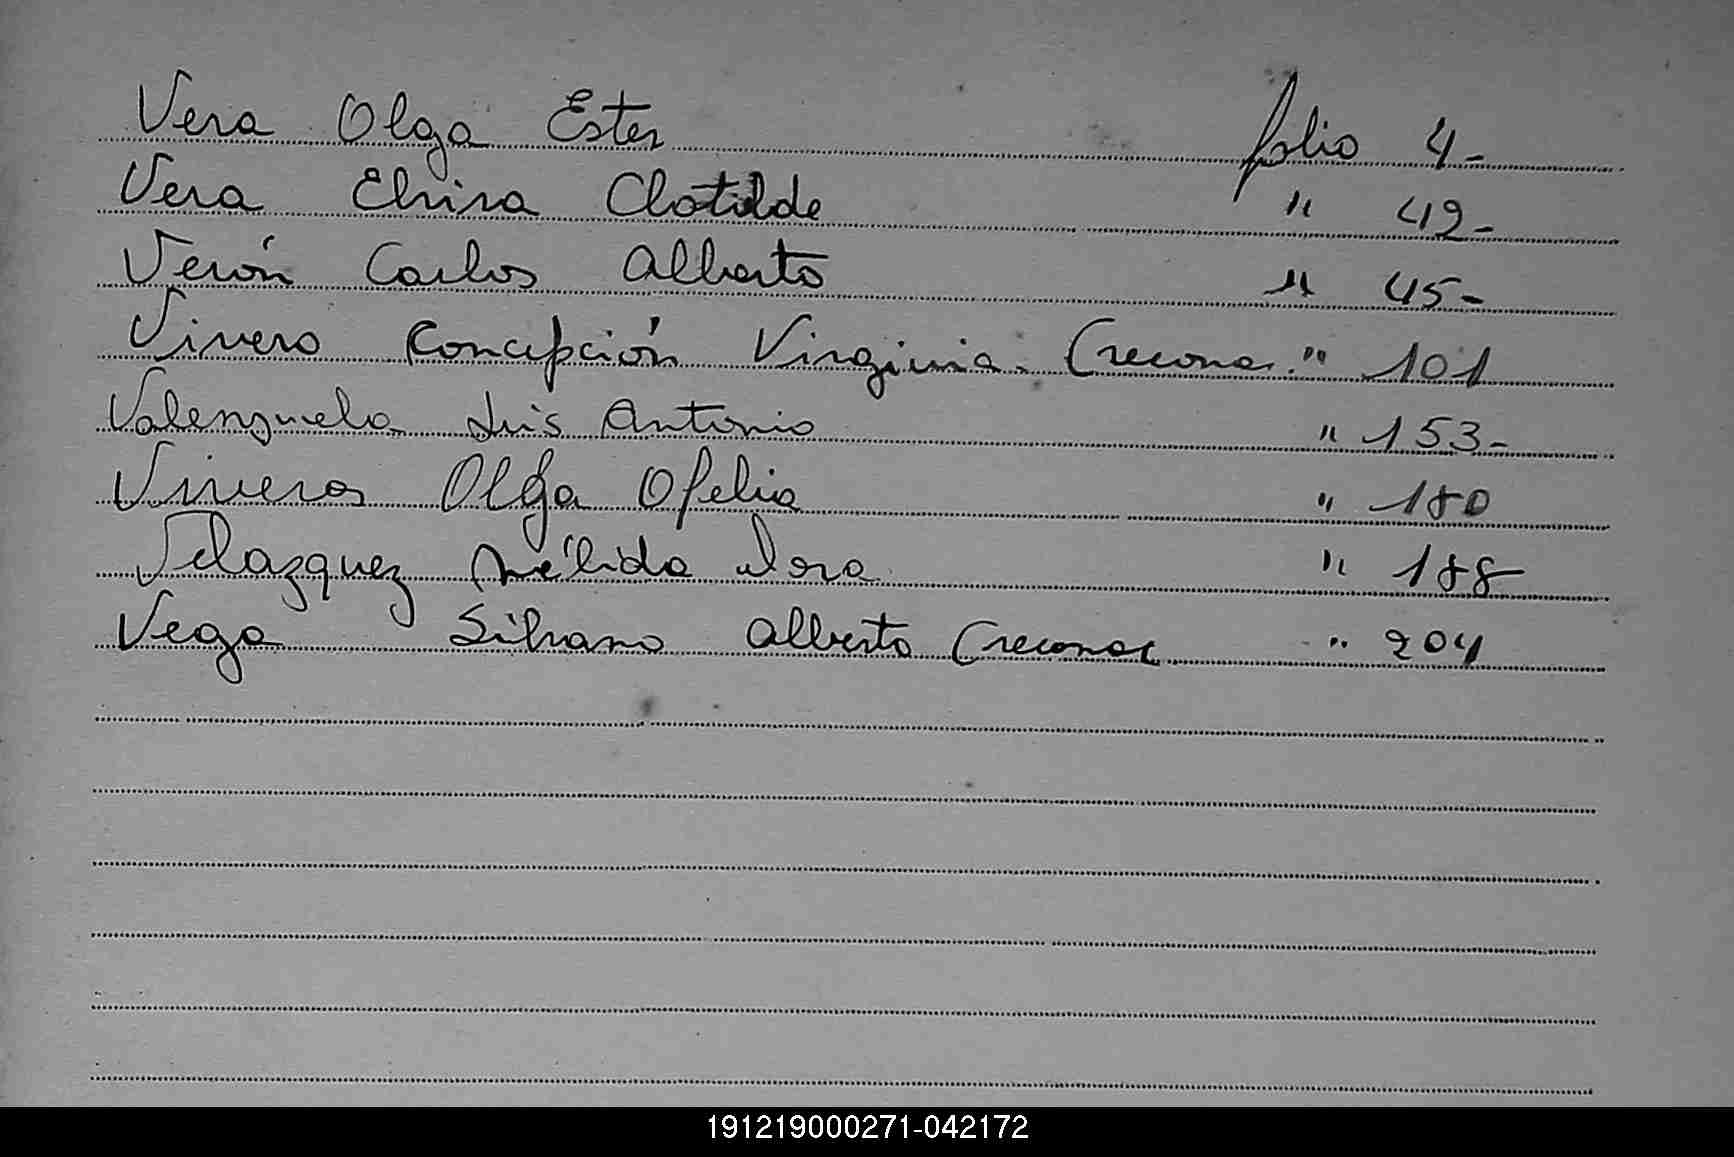 Vera Olga Ester folio 4-
Vera Elvira Clotilde " 42-
Verón Carlos Alberto " 45-
Vivero Concepción Virginia. (reconoc. " 101
Valenzuela Luis Antonio " 153-
Viveros Olga Ofelia " 180
Velazquez Nélida Dora " 188
Vega Silvano Alberto (reconoc " 204
191219000271-042172